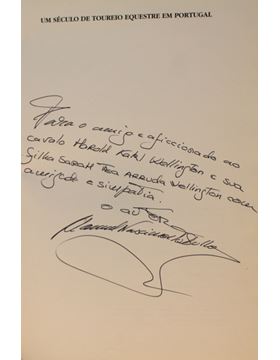 UM SÉCULO DE TOUREIO EQUESTRE EM PORTUGAL
Para o amigo e aficcionado ao
cavalo Harold Wellington e sua
filha SARAH ARRUDA Wellington com
amizade e simpatia.
O autor
Manuel